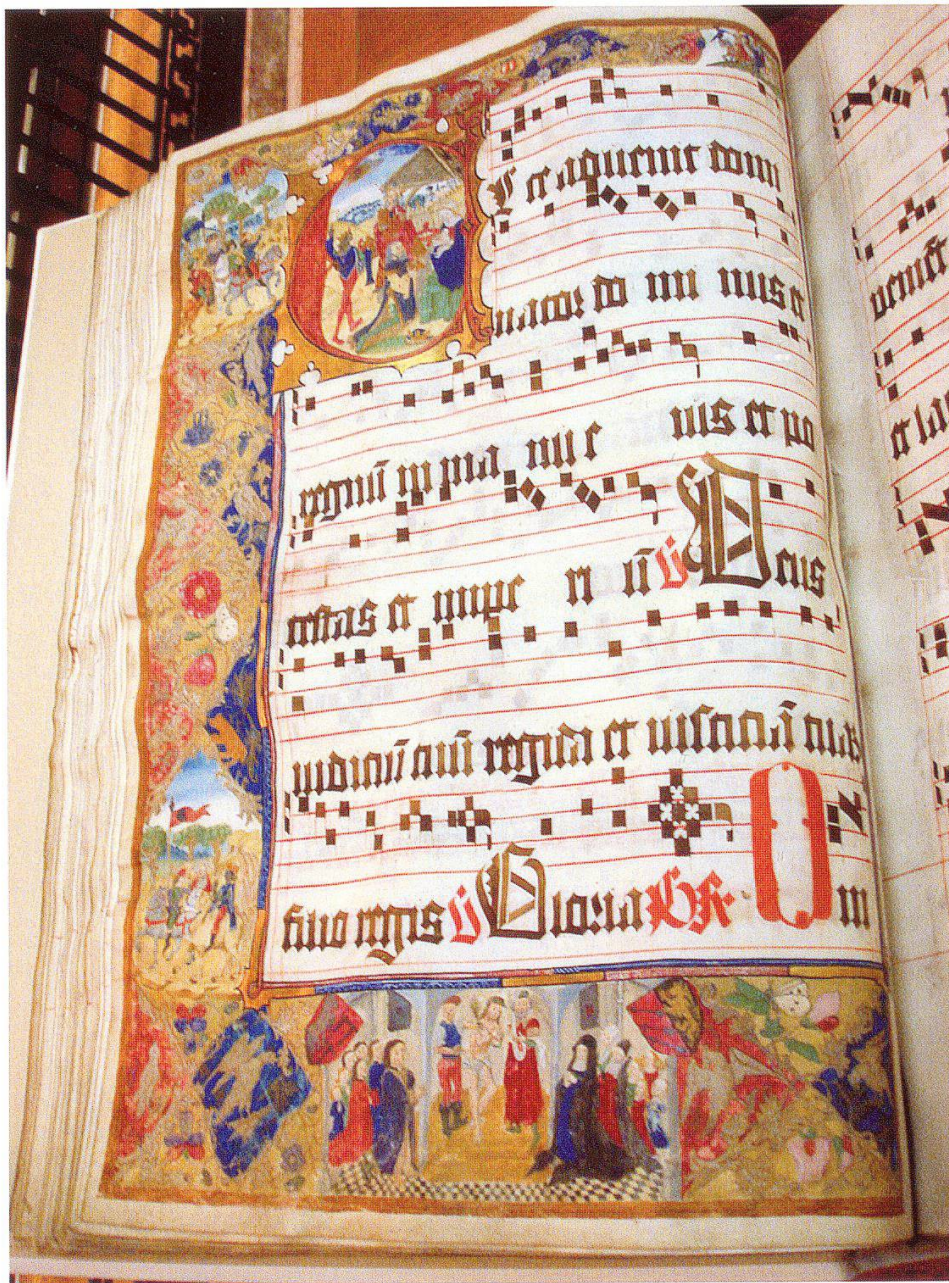 ECce aduenit domi
nator do mi nus et
regnū in ma nu e ius et po
testas et impe ri ū ℣ Deus
iudiciū tuū regi da et iusticiā tuā
filio regis ℣ Gloria GR. Om